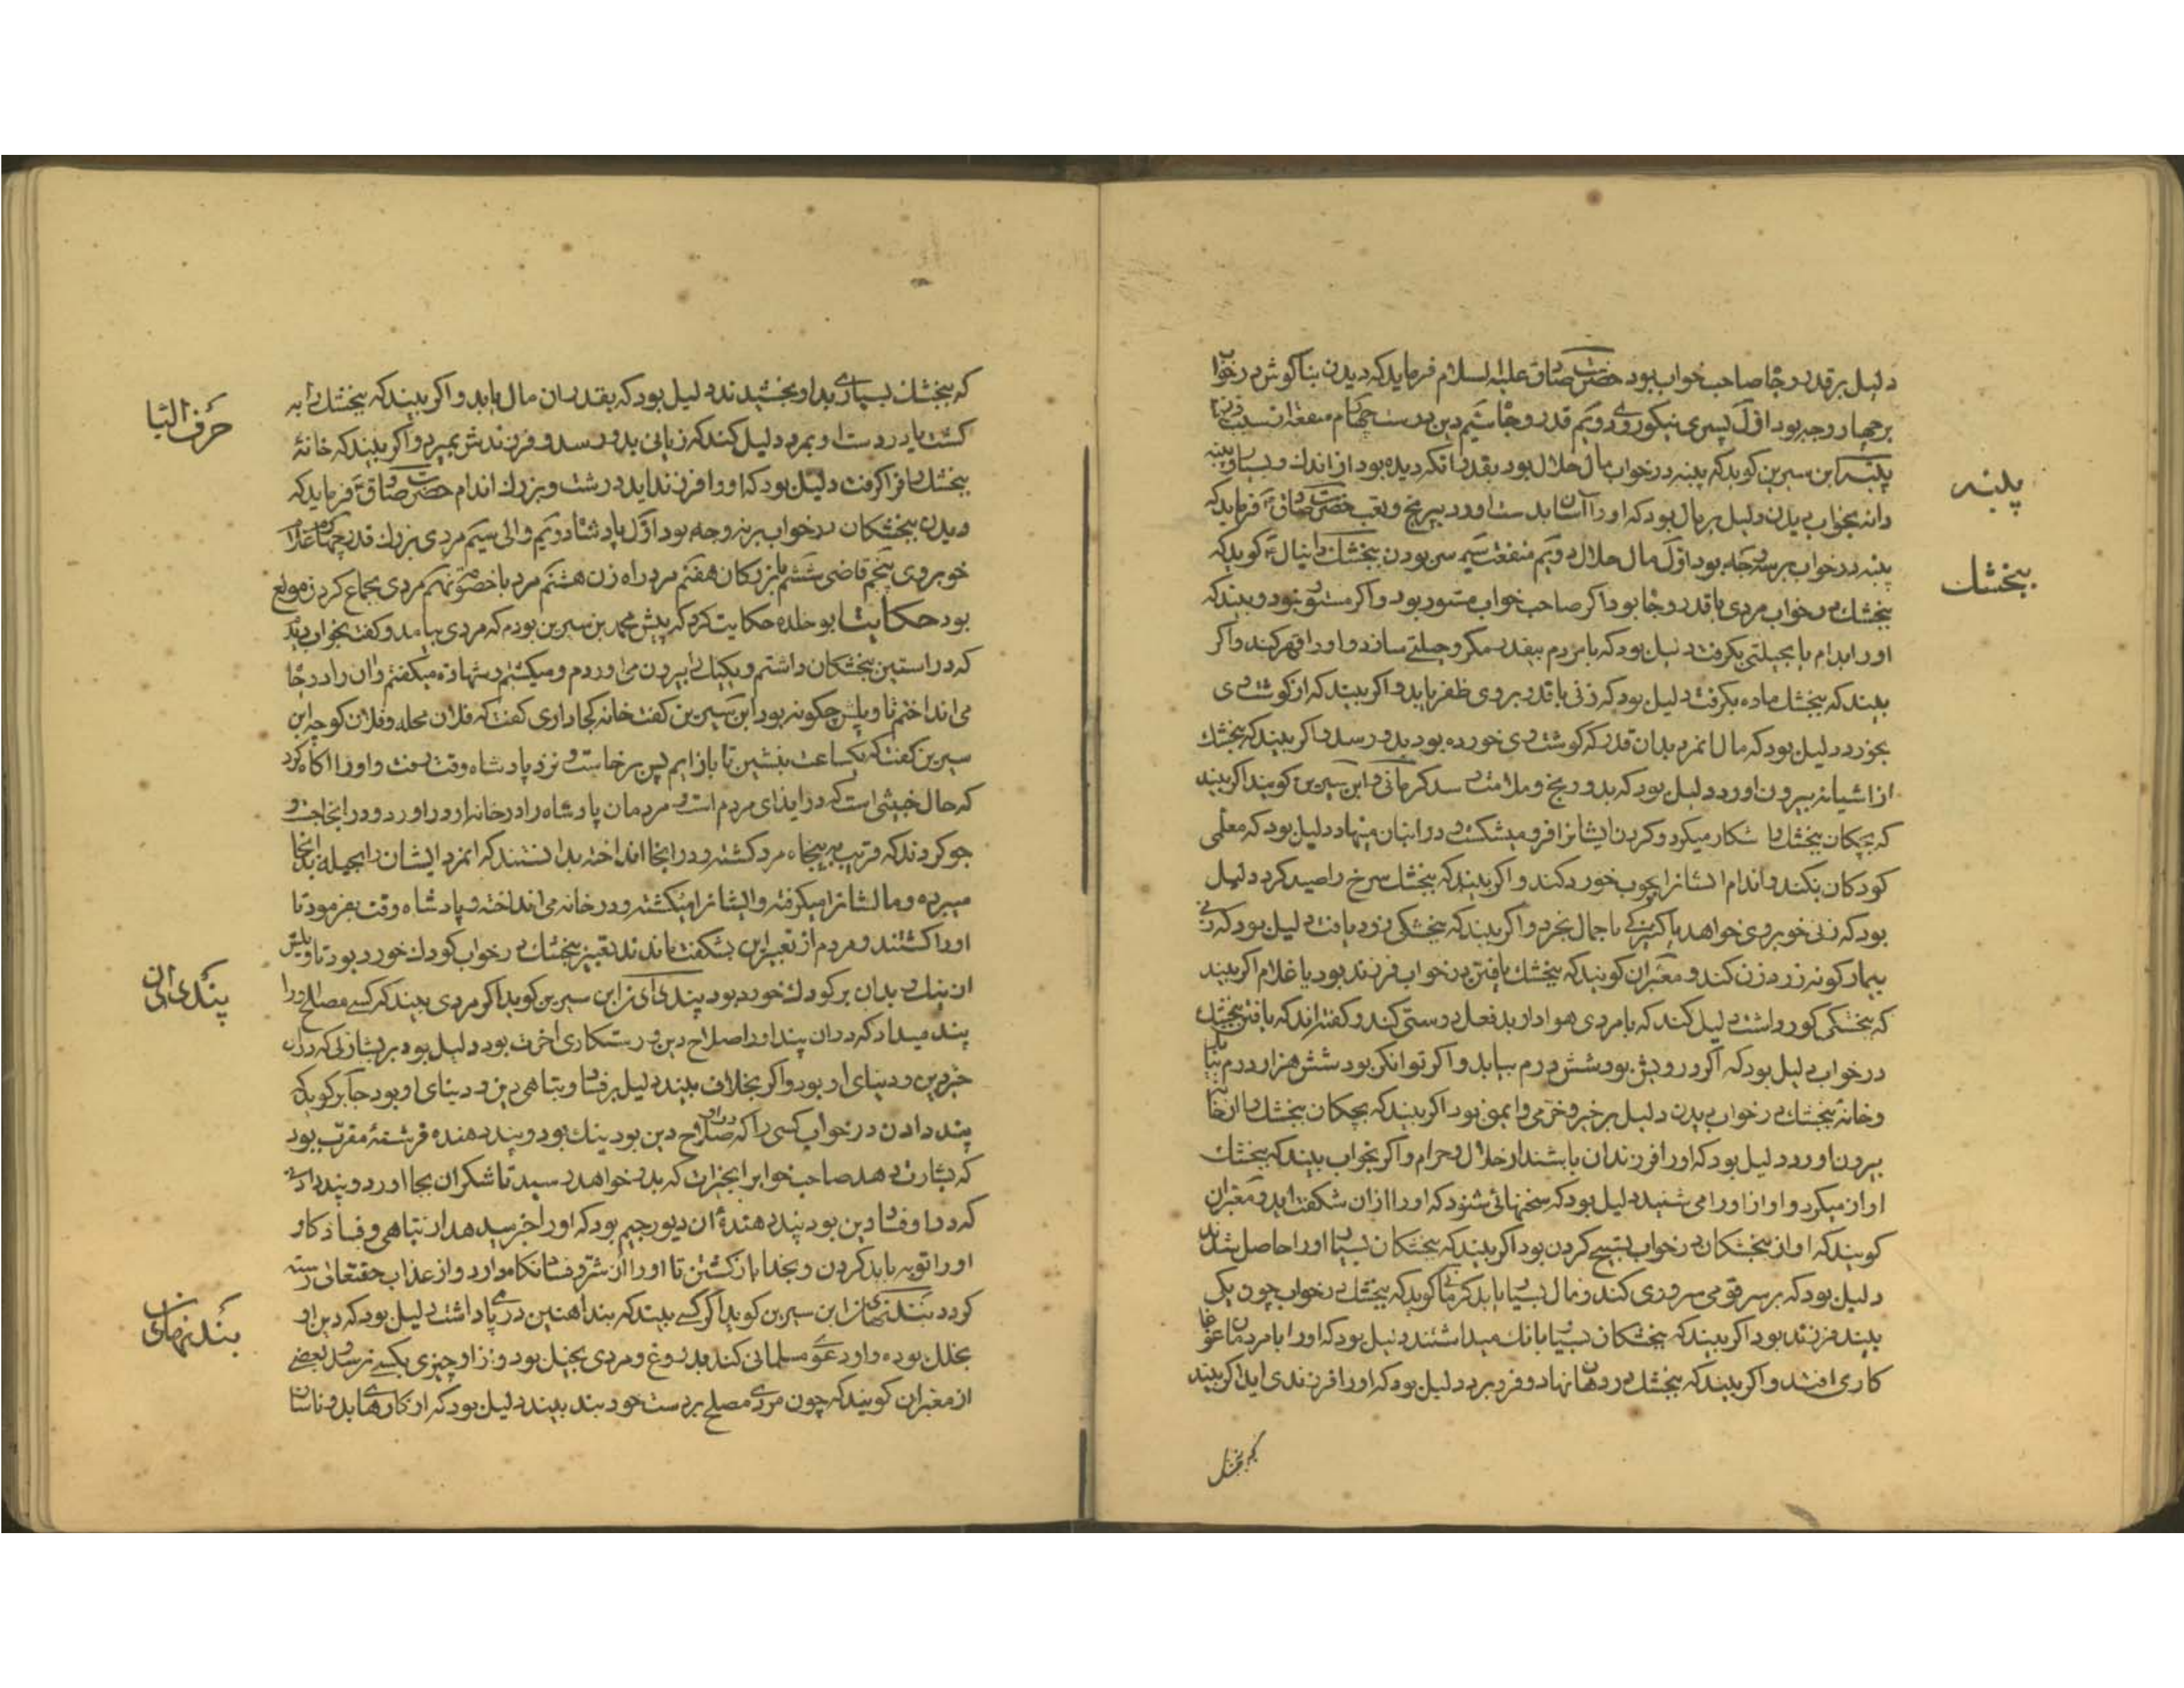 دلیل بر قدر و جاه صاحب خواب بود حضرت صادق علیه السلام فرماید که دیدن بناکوش در خواب
بر چهار وجه بود اوّل پسری نیکوروی دویّم قدر و جاه سیّم دین درست چهارم منفعت از سبب زن
پنبه ابن سیرین کوید که پنبه در خواب مال حلال بود بقدر انکه دیده بود از اندک و بسیار و پنبه
دانه بخواب دیدن دلیل بر مال بود که او را آسان بدست اورد بی رنج و تعب حضرت صادق ع فرماید که
پنبه در خواب بر سه وجه بود اوّل مال حلال دویّم منفعت سیّم بودن پنجشک دانیال ع کوید که
پنجشک در خواب مردی با قدر و جاه بود اکر صاحب خواب مستور بود و اکر مستور نبود و بیند که
او را بدام یا بحیلتی بکرفت دلیل بود که با مردم بیقدر مکر و حیلتی سازد و او را قهر کند و اکر
بیند که پنجشک ماده بکرفت دلیل بود که زنی با قدر بر وی ظفر یابد و اکر بیند که از کوشت وی
بخورد دلیل بود که مال انمرد بدان قدر که کوشت وی خورده بود بدو رسد و اکر بیند که پنجشک
از اشیانه بیرون اورد دلیل بود که بدو رنج و ملامت رسد کرمانی و ابن سیرین کویند اکر بیند
که بچکان پنجشک را شکار میکرد و کردن ایشانرا فرو میشکست و در انبان مینهاد دلیل بود که معلّمی
کودکان بکند و اندام ایشانرا بچوب خورد کند و اکر بیند که پنجشک سرخ را صید کرد دلیل
بود که زنی خوبروی خواهد یا کنیزکی با جمال بخرد و اکر بیند که پنجشکی زرد یافت دلیل بود که زنی
بیمار کونه زرد زن کند و معبّران کویند که پنجشک یافتن در خواب فرزند بود یا غلام اکر بیند
که پنجشکی کور داشت دلیل کند که با مردی هوادار بدفعل دوستی کند و کفته‌اند که یافتن پنجشک
در خواب دلیل بود که اکر درویش بود شش درم بیابد و اکر توانکر بود شش هزار درم بیابد
و خانهٔ پنجشک در خواب دیدن دلیل بر خیر و خرّمی و ایمنی بود اکر بیند که بچکان پنجشک را از خانه
بیرون اورد دلیل بود که او را فرزندان باشند از حلال و حرام و اکر بخواب بیند که پنجشک
اواز میکرد و اواز او را می شنید دلیل بود که سخنهائی شنود که او را از ان شکفت اید و معبّران
کویند که اواز پنجشکان در خواب تسبیح کردن بود اکر بیند که پنجشکان بسیار او را حاصل شدند
دلیل بود که بر سر قومی سروری کند و مال بسیار یابد کرمانی کوید که پنجشک در خواب چون یکی
بیند فرزند بود اکر بیند که پنجشکان بسیار بانک میداشتند دلیل بود که او را با مردمان غوغا
کاری افتد و اکر بیند که پنجشک در دهان نهاد و فرو برد دلیل بود که او را فرزندی اید اکر بیند
که پنجشک
پنبه
پنجشک
که پنجشک بسیاری بدو بخشیدند دلیل بود که بقدر ان مال یابد و اکر بیند که پنجشک را به
کشت یا در دست او بمرد دلیل کند که زیانی بدو رسد و فرزندش بمیرد و اکر بیند که خانهٔ
پنجشک را فرا کرفت دلیل بود که او را فرزند اید درشت و بزرک اندام حضرت صادق ع فرماید که
دیدن پنجشکان در خواب بر نه وجه بود اوّل پادشاه دویّم والی سیّم مردی بزرک قدر چهارم غلام
خوبروی پنجم قاضی ششم بازرکان هفتم مرد راه زن هشتم مرد با خصومت نهم مردی بجماع کردن مولع
بود حکایت ابو خلده حکایت کرد که پیش محمد بن سیرین بودم که مردی بیامد و کفت بخواب دیدم
که در استین پنجشکان داشتم و یکیک را بیرون می اوردم و میکشتم و شهادة میکفتم و ان را در چاه
می انداختم تاویلش چکونه بود ابن سیرین کفت خانه کجا داری کفت که فلان محله و فلان کوچه ابن
سیرین کفت که یکساعت بنشین تا باز ایم پس برخاست و نزد پادشاه وقت رفت و او را اکاه کرد
که حال خبیثی است که در ایذای مردم است مردمان پادشاه را در خانه او در اورد و در انجا جست و
جو کردند که قریب به پنجاه مرد کشته و در انجا انداخته بدانستند که انمرد ایشان را بحیله بدانجا
میبرده و مالشانرا میکرفته و ایشانرا میکشته و در خانه می انداخته و پادشاه وقت بفرمود تا
او را کشتند و مردم از تعبیر ابن بشکفت ماندند تعبیر پنجشک در خواب کودک خورد بود تاویلش
ان نیک و بد ان بر کودک خورد بود پند دادن ابن سیرین کوید اکر مردی بیند که کسی مصلح او را
پند میداد که در ان پند او را صلاح دین و رستکاری اخرت بود دلیل بود بر بشارتی که در ان
خیر دین و دنیای او بود و اکر بخلاف بیند دلیل بر فساد و تباهی دین و دنیای او بود جابر کوید که
پند دادن در خواب کسی را که در او صلاح دین بود نیک بود و پند دهنده فرشتهٔ مقرّب بود
که بشارت دهد صاحب خوابرا بخیرات که بدو خواهد رسید تا شکر ان بجا اورد و پند دادنی
که در او فساد دین بود پند دهندهٔ ان دیو رجیم بود که او را خبر میدهد از تباهی و فساد کار
او را توبه باید کردن و بخدا بازکشتن تا او را از شرّ و فساد نکاه دارد و از عذاب حقتعالی رسته
کردد بند نهادن ابن سیرین کوید اکر کسی بیند که بند اهنین در پای داشت دلیل بود که دین او
بخلل بوده و او دعوی مسلمانی کند بدروغ و مردی بخیل بود و از او چیزی بکسی نرسد و بعضی
از معبّران کویند که چون مردی مصلح بر دست خود بند بیند دلیل بود که از کارهای بد و ناشا
حرف الیا
بند نهادن